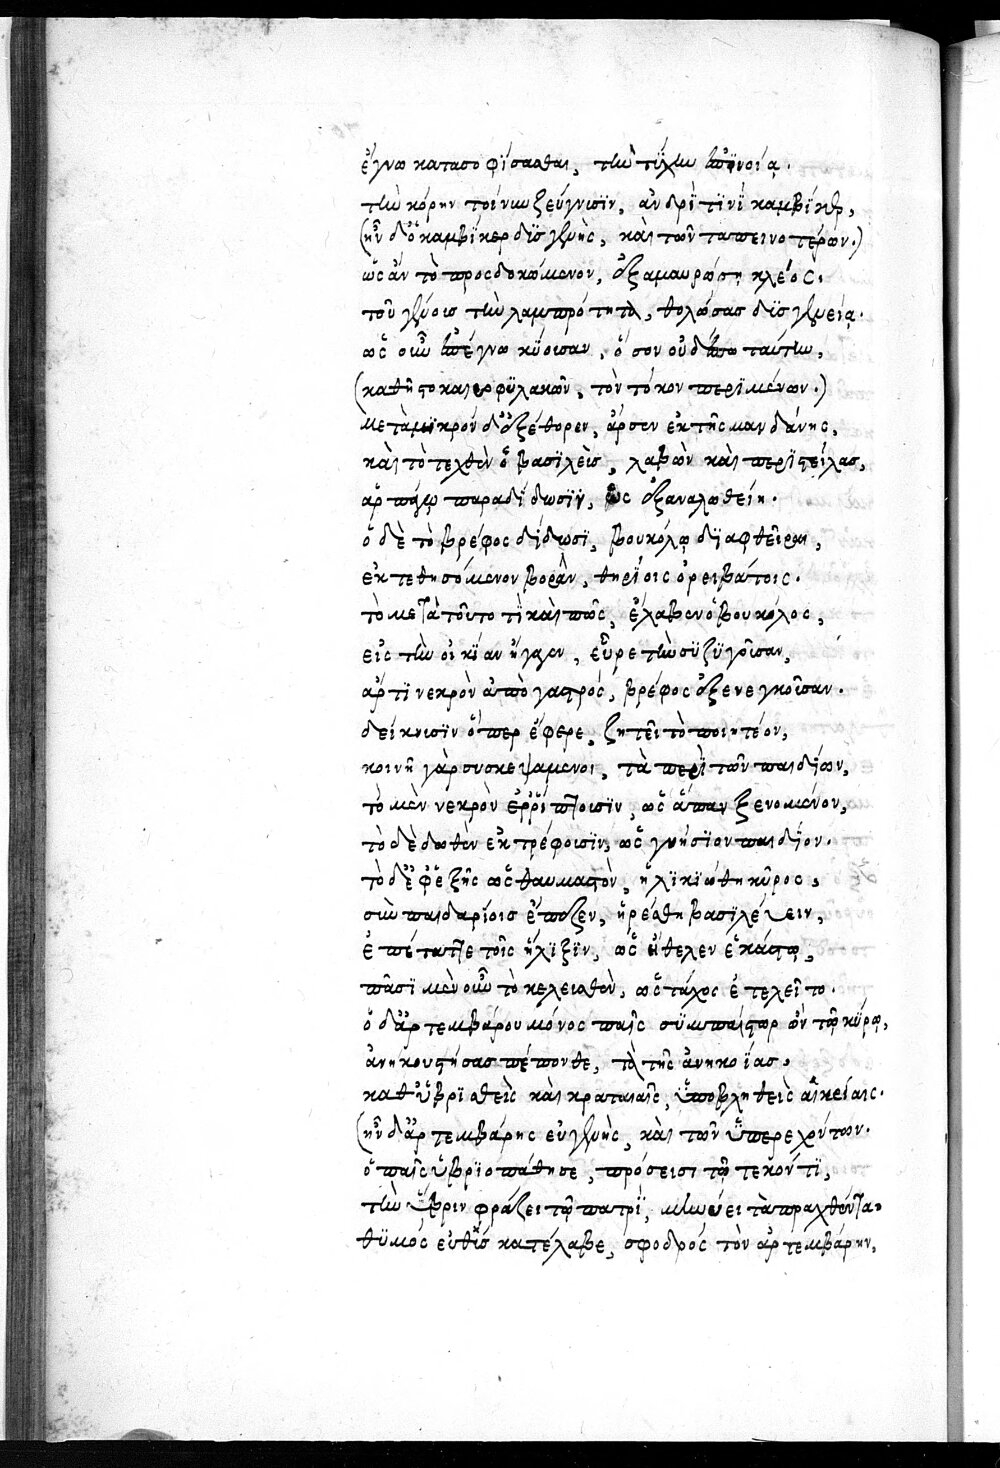 ἔγνω κατασοφίσασθαι, τὴν τύχην ἀπονοίᾳ.
τὴν κόρην τοίνυν ξεύγνισϊν, ἀνδρὶ τϊνὶ καμβύκερ,
(ἦν δ' ὁ καμβϊκερ δϊσγενὴς, καὶ τῶν ταπεινοτέρων.)
ὡς ἂν τὸ προσδοκώμενον, ἐξαμαυρώσῃ κλέος.
τοῦ γένοισ τὴν λαμπρότητα, θολώσασ δϊσγενείᾳ.
ὡς οὖν ἀπέγνω κύοισαν, ὅσον οὐδέπω ταύτην,
(καθῆστο καιροφϋλακῶν, τὸν τόκον περϊμένων.)
μετὰ μϊκρὸν δ' ἐξέθορεν, ἄρσεν ἐκ τῆς μανδάνης,
καὶ τὸ τεχθὲν ὁ βασϊλεὺσ, λαβὼν καὶ περϊστείλας,
ἁρπάγῳ παραδίδωσϊν, ὡς ἐξαναλωθείη.
ὁ δὲ τὸ βρέφος δίδωσϊ, βουκόλῳ δϊαφθεῖραι,
ἐκτεθησόμενον βορὰν, θηρίοις ὀρειβάτοις.
τὸ μετὰ τοῦτο τὶ καὶ πῶς, ἔλαβεν ὁ βουκόλος,
εἰς τὴν οἰκίαν ἤγαγεν, εὗρε τὴν σύζϋγοῖσαν,
ἄρτϊ νεκρὸν ἀπὸ γαστρός, βρέφος ἐξενεγκοῖσαν.
δείκνισϊν ὅπερ ἔφερε, ζητεῖ τὸ ποιητέον,
κοινῇ γὰρ συσκεψάμενοι, τὰ περὶ τῶν παιδίων,
τὸ μὲν νεκρὸν ἐρρίπτοισϊν, ὡς ἅπαν ξενομένον,
τὸ δὲ δωθὲν ἐκτρέφοισϊν, ὡς γνήσϊον παιδίον.
τὸ δ' ἐφεξῆς ὡς θαυμαστὸν, ἡλϊκϊώθη κῦρος,
σὺν παιδαρίοισ ἔπαιζεν, ἡρέθη βασϊλεύειν,
ἐπέταττε τοῖς ἥλϊξϊν, ὡς ἤθελεν ἑκάστῳ,
πᾶσϊ μὲν οὖν τὸ κελεισθὲν, ὡς τάχος ἐτελεῖτο.
ὁ δ' ἀρτεμβάρου μόνος παῖς σϋμπαίστωρ ὢν τῷ κύρῳ,
ἀνηκουστήσασ πέπονθε, τὰ τῆς ἀνηκοΐασ.
καθϋβρϊσθεὶς καὶ κραταιαῖς, ὑποβληθεὶς αἰκείαις.
(ἦν δ' ἀρτεμβάρης εὐγενὴς, καὶ τῶν ὑπερεχόντων.
ὁ παῖς ὑβρϊοπάθησε, πρόσεισι τῷ τεκόντϊ,
τὴν ὕβριν φράζει τῷ πατρὶ, μηνύει τὰ πραχθέντα.
θϋμὸς εὐθὺσ κατέλαβε, σφοδρὸς τὸν ἀρτεμβάρην,